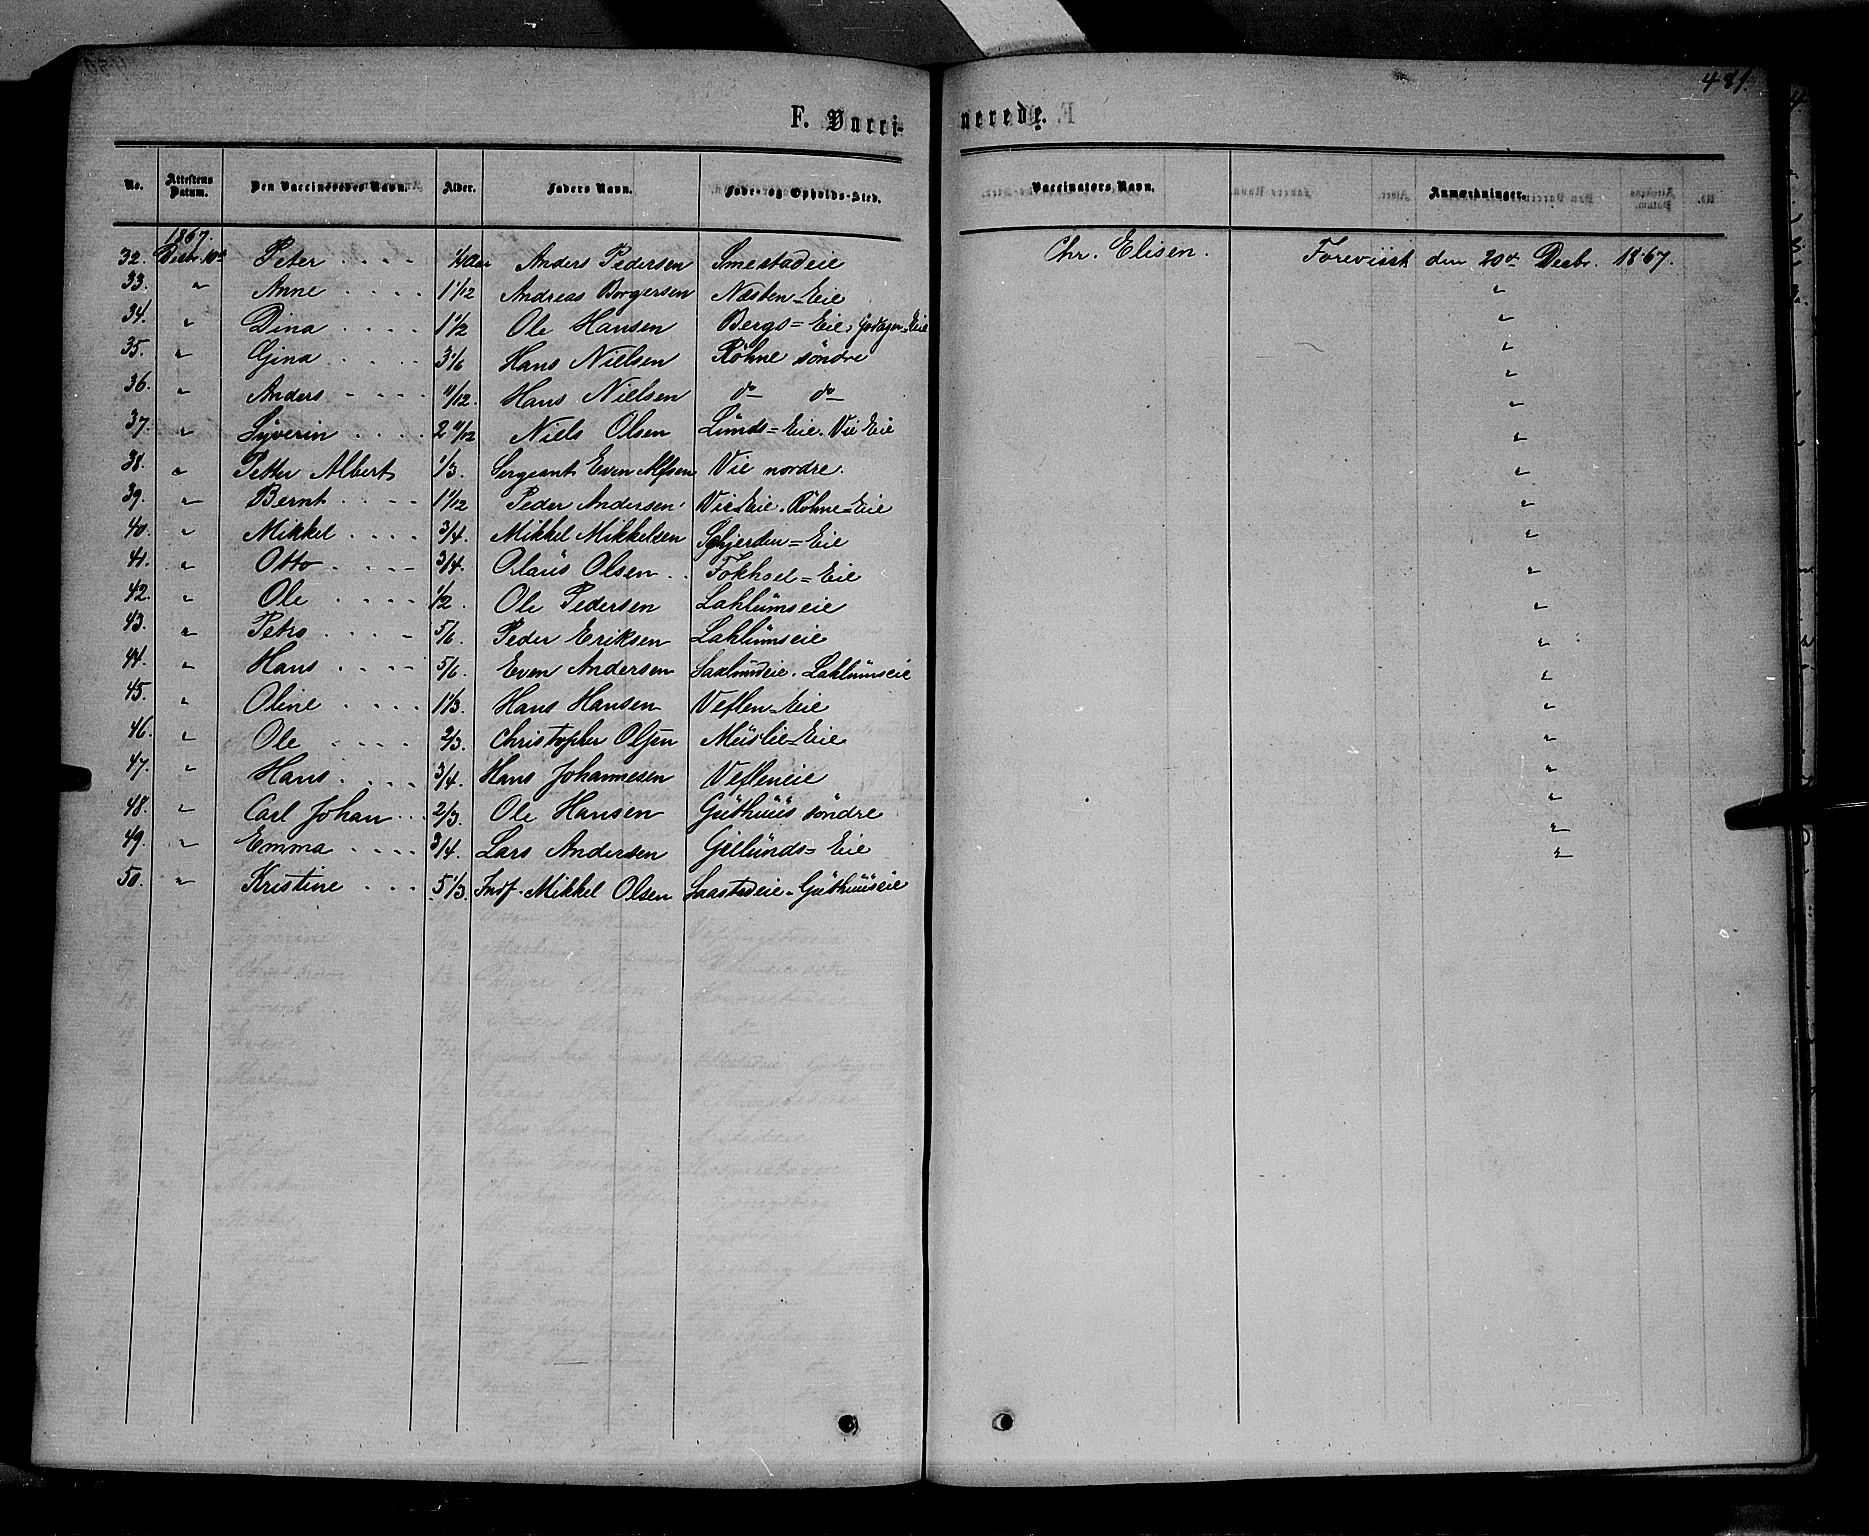 481.
F. Vacci-nerede.
No. | Attestens Datum. | Den Vaccineredes Navn. | Alder. | Faders Navn. | Føde- og Opholds-Sted. | Vaccinators Navn. | Anmærkninger.
1867.
32. Decbr. 10de Peter Anders Pedersen Smestadeie Chr. Elisen. Foreviist den 20de Decbr. 1867.
33. " Anne 1 1/12 Andreas Borgersen Næsten-Eie "
34. " Dina 1 1/2 Ole Hansen Bergs=Eie, Godager=Eie "
35. " Gina 3 1/6 Hans Nielsen Röhne söndre "
36. " Anders 11/12. Hans Nielsen do do "
37. " Syverin 2 11/12 Niels Olsen Lunds=Eie. Vie Eie "
38. " Petter Albert 1/3. Sergeant Even Alfsen Vie nordre. "
39. " Bernt 1 1/12 Peder Andersen Vie Eie. Röhne=Eie "
40. " Mikkel 3/4. Mikkel Mikkelsen Schjerden=Eie "
41. " Otto 3/4. Olaus Olsen Fokhoel=Eie "
42. " Ole 1/2. Ole Pedersen Lahlumseie "
43. " Petro 5/6. Peder Eriksen Lahlumseie "
44. " Hans 5/6. Even Andersen Saxlundeie. Lahlumseie "
45. " Oline 1 1/3. Hans Hansen Veflen-Eie "
46. " Ole 2/3. Christopher Olsen Muslie-Eie "
47. " Hans 3/4. Hans Johannesen Vefleneie "
48. " Carl Johan 2/3. Ole Hansen Guthuus söndre "
49. " Emma 3/4. Lars Andersen Gillunds=Eie "
50. " Kristine 5 1/3. Indf. Mikkel Olsen Saastadeie. Guthuuseie "